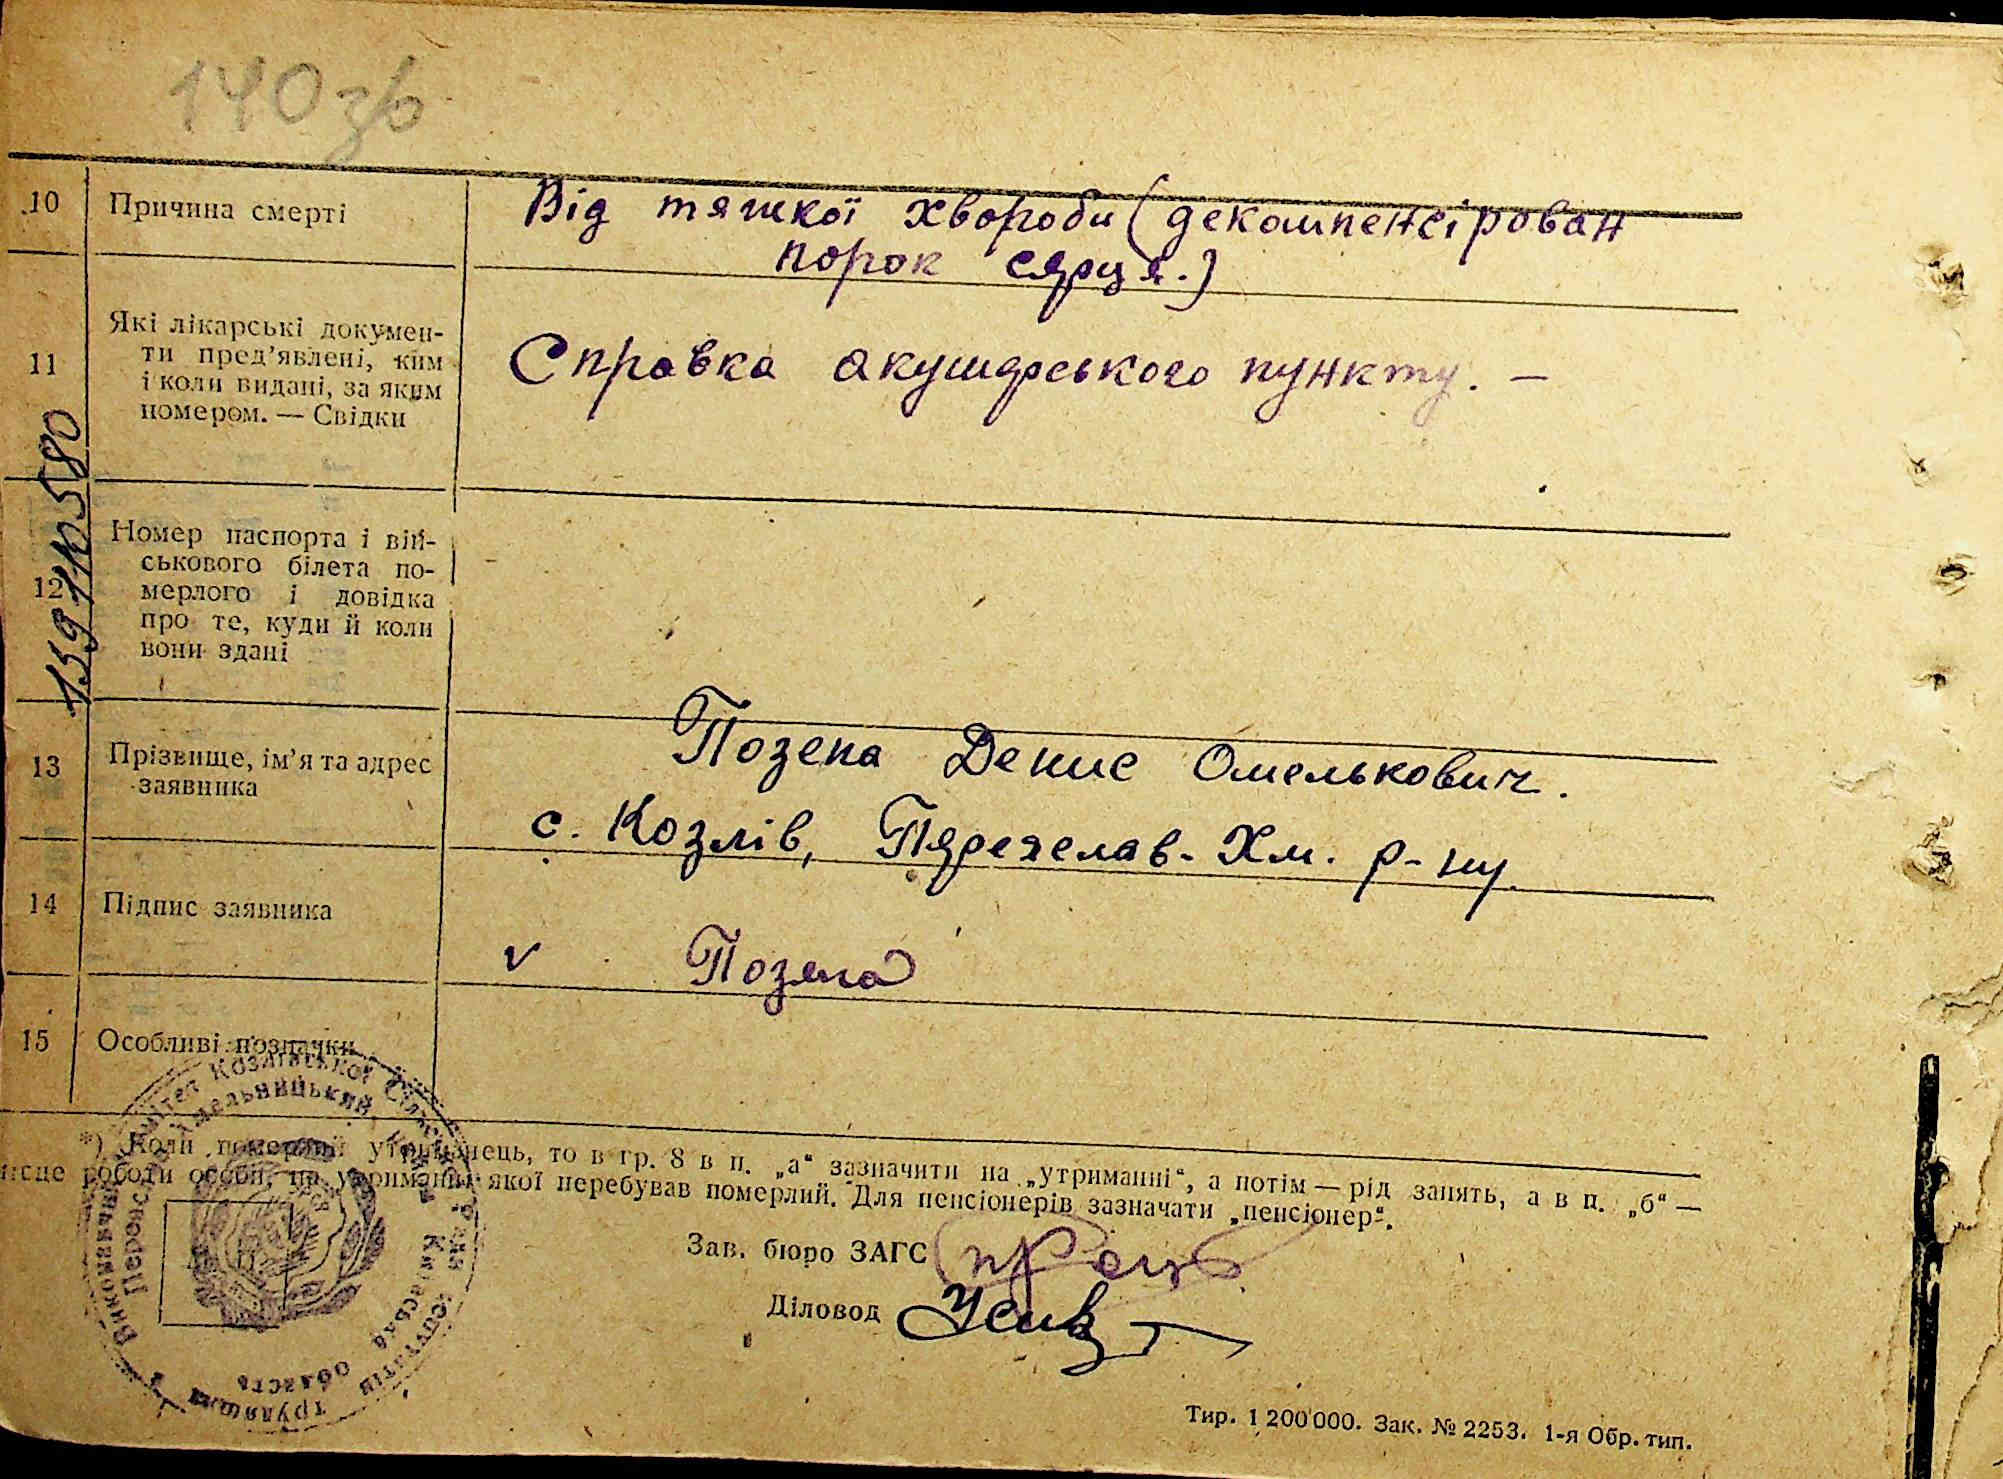 140 зв
10 Причина смерті
Від тяжкої хвороби (декомпенсірован
порок серця.)
11 Які лікарські докумен-
ти пред'явлені, ким
і коли видані, за яким
номером. — Свідки
Справка акушерського пункту. —
12 Номер паспорта і вій-
ськового білета по-
мерлого і довідка
про те, куди й коли
вони здані
13 Прізвище, ім'я та адрес
заявника
Позепа Денис Омелькович.
с. Козлів, Переяслав-Хм. р-ну.
14 Підпис заявника
v Позепа
15 Особливі позначки
*) Коли померлий утриманець, то в гр. 8 в п. „а“ зазначити на „утриманні“, а потім — рід занять, а в п. „б“ —
місце роботи особи, на утриманні якої перебував померлий. Для пенсіонерів зазначати „пенсіонер“.
Зав. бюро ЗАГС
Діловод
Тир. 1 200 000. Зак. № 2253. 1-я Обр. тип.
Козлівської Сільської
Хмельницький
Київська область
трудящих